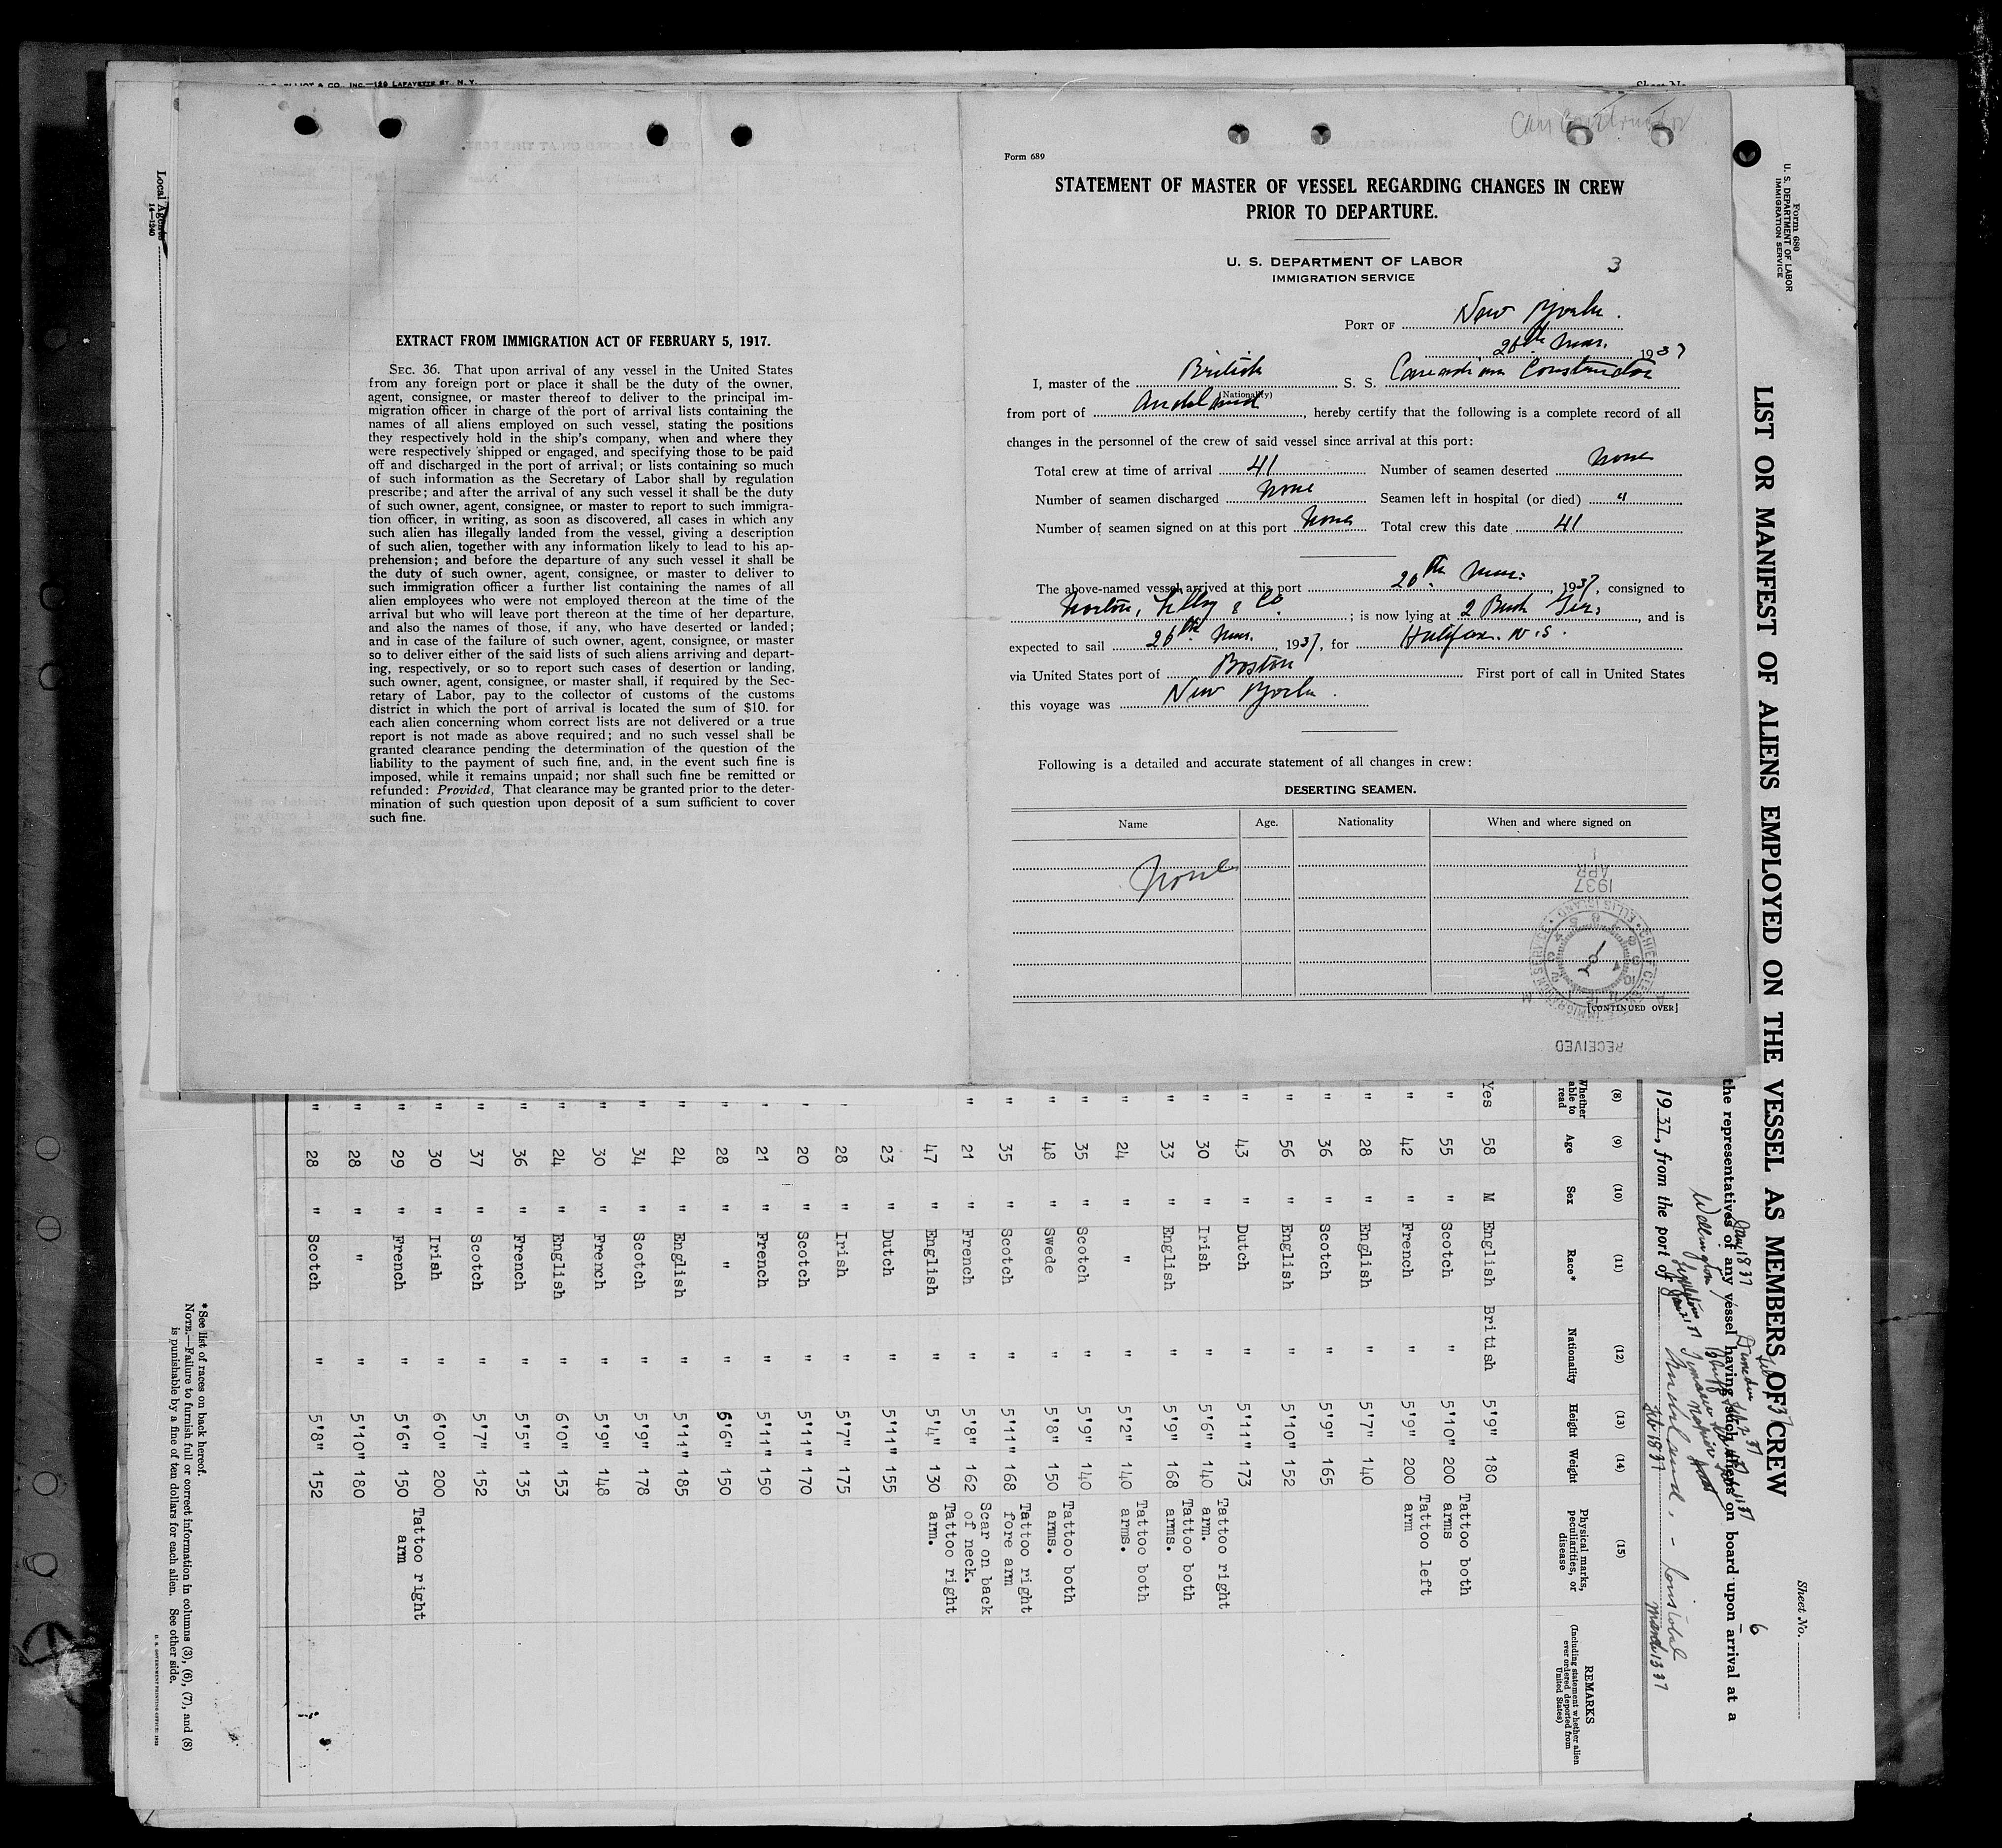 Local Agents
14—1240
ELLIOT & CO. INC.—129 LAFAYETTE ST. N. Y.
Sheet No.
EXTRACT FROM IMMIGRATION ACT OF FEBRUARY 5, 1917.
SEC. 36. That upon arrival of any vessel in the United States
from any foreign port or place it shall be the duty of the owner,
agent, consignee, or master thereof to deliver to the principal im-
migration officer in charge of the port of arrival lists containing the
names of all aliens employed on such vessel, stating the positions
they respectively hold in the ship's company, when and where they
were respectively shipped or engaged, and specifying those to be paid
off and discharged in the port of arrival; or lists containing so much
of such information as the Secretary of Labor shall by regulation
prescribe; and after the arrival of any such vessel it shall be the duty
of such owner, agent, consignee, or master to report to such immigra-
tion officer, in writing, as soon as discovered, all cases in which any
such alien has illegally landed from the vessel, giving a description
of such alien, together with any information likely to lead to his ap-
prehension; and before the departure of any such vessel it shall be
the duty of such owner, agent, consignee, or master to deliver to
such immigration officer a further list containing the names of all
alien employees who were not employed thereon at the time of the
arrival but who will leave port thereon at the time of her departure,
and also the names of those, if any, who have deserted or landed;
and in case of the failure of such owner, agent, consignee, or master
so to deliver either of the said lists of such aliens arriving and depart-
ing, respectively, or so to report such cases of desertion or landing,
such owner, agent, consignee, or master shall, if required by the Sec-
retary of Labor, pay to the collector of customs of the customs
district in which the port of arrival is located the sum of $10. for
each alien concerning whom correct lists are not delivered or a true
report is not made as above required; and no such vessel shall be
granted clearance pending the determination of the question of the
liability to the payment of such fine, and, in the event such fine is
imposed, while it remains unpaid; nor shall such fine be remitted or
refunded: Provided, That clearance may be granted prior to the deter-
mination of such question upon deposit of a sum sufficient to cover
such fine.
Can Constructor
Form 689
STATEMENT OF MASTER OF VESSEL REGARDING CHANGES IN CREW
PRIOR TO DEPARTURE.
U. S. DEPARTMENT OF LABOR
IMMIGRATION SERVICE
3
PORT OF New York.
26th Mar. 1937
I, master of the British S. S. Canadian Constructor
(Nationality)
from port of Auckland, hereby certify that the following is a complete record of all
changes in the personnel of the crew of said vessel since arrival at this port:
Total crew at time of arrival 41 Number of seamen deserted None
Number of seamen discharged None Seamen left in hospital (or died) "
Number of seamen signed on at this port None Total crew this date 41
The above-named vessel arrived at this port 20th Mar. 1937, consigned to
Norton, Lilly & Co; is now lying at 2 Bush Ter., and is
expected to sail 26th Mar. 1937, for Halifax N.S.
via United States port of Boston First port of call in United States
this voyage was New York.
Following is a detailed and accurate statement of all changes in crew:
DESERTING SEAMEN.
Name Age. Nationality When and where signed on
None
[CONTINUED OVER]
RECEIVED
CHIEF CLERK IMMIGRATION SERVICE ELLIS ISLAND
1937
APR
1
Form 680
U. S. DEPARTMENT OF LABOR
IMMIGRATION SERVICE
Sheet No.
6
LIST OR MANIFEST OF ALIENS EMPLOYED ON THE VESSEL AS MEMBERS OF CREW
the representatives of any vessel having such aliens on board upon arrival at a
Wellington
Dunedin
1937, from the port of Auckland, - Cristobal
Feb 18 37 March 13 37
(8) (9) (10) (11) (12) (13) (14) (15)
Whether able to read Age Sex Race* Nationality Height Weight Physical marks, peculiarities, or disease REMARKS (Including statement whether alien ever ordered deported from United States)
Yes 58 M English British 5'9" 180
" 55 " Scotch " 5'10" 200 Tattoo both arms
" 42 " French " 5'9" 200 Tattoo left arm
" 28 " English " 5'7" 140
" 36 " Scotch " 5'9" 165
" 56 " English " 5'10" 152
" 43 " Dutch " 5'11" 173
" 30 " Irish " 5'6" 140 Tattoo right arm.
" 33 " English " 5'9" 168 Tattoo both arms.
" 24 " " " 5'2" 140 Tattoo both arms.
" 35 " Scotch " 5'9" 140
" 48 " Swede " 5'8" 150 Tattoo both arms.
" 35 " Scotch " 5'11" 168 Tattoo right fore arm
" 21 " French " 5'8" 162 Scar on back of neck.
47 " English " 5'4" 130 Tattoo right arm.
23 " Dutch " 5'11" 155
" 28 " Irish " 5'7" 175
" 20 " Scotch " 5'11" 170
" 21 " French " 5'11" 150
" 28 " " " 5'6" 150
" 24 " English " 5'11" 185
" 34 " Scotch " 5'9" 178
" 30 " French " 5'9" 148
" 24 " English " 6'0" 153
" 36 " French " 5'5" 135
" 37 " Scotch " 5'7" 152
" 30 " Irish " 6'0" 200
" 29 " French " 5'6" 150 Tattoo right arm
" 28 " " " 5'10" 180
" 28 " Scotch " 5'8" 152
* See list of races on back hereof.
NOTE.—Failure to furnish full or correct information in columns (3), (6), (7), and (8)
is punishable by a fine of ten dollars for each alien. See other side.
U. S. GOVERNMENT PRINTING OFFICE: 1932